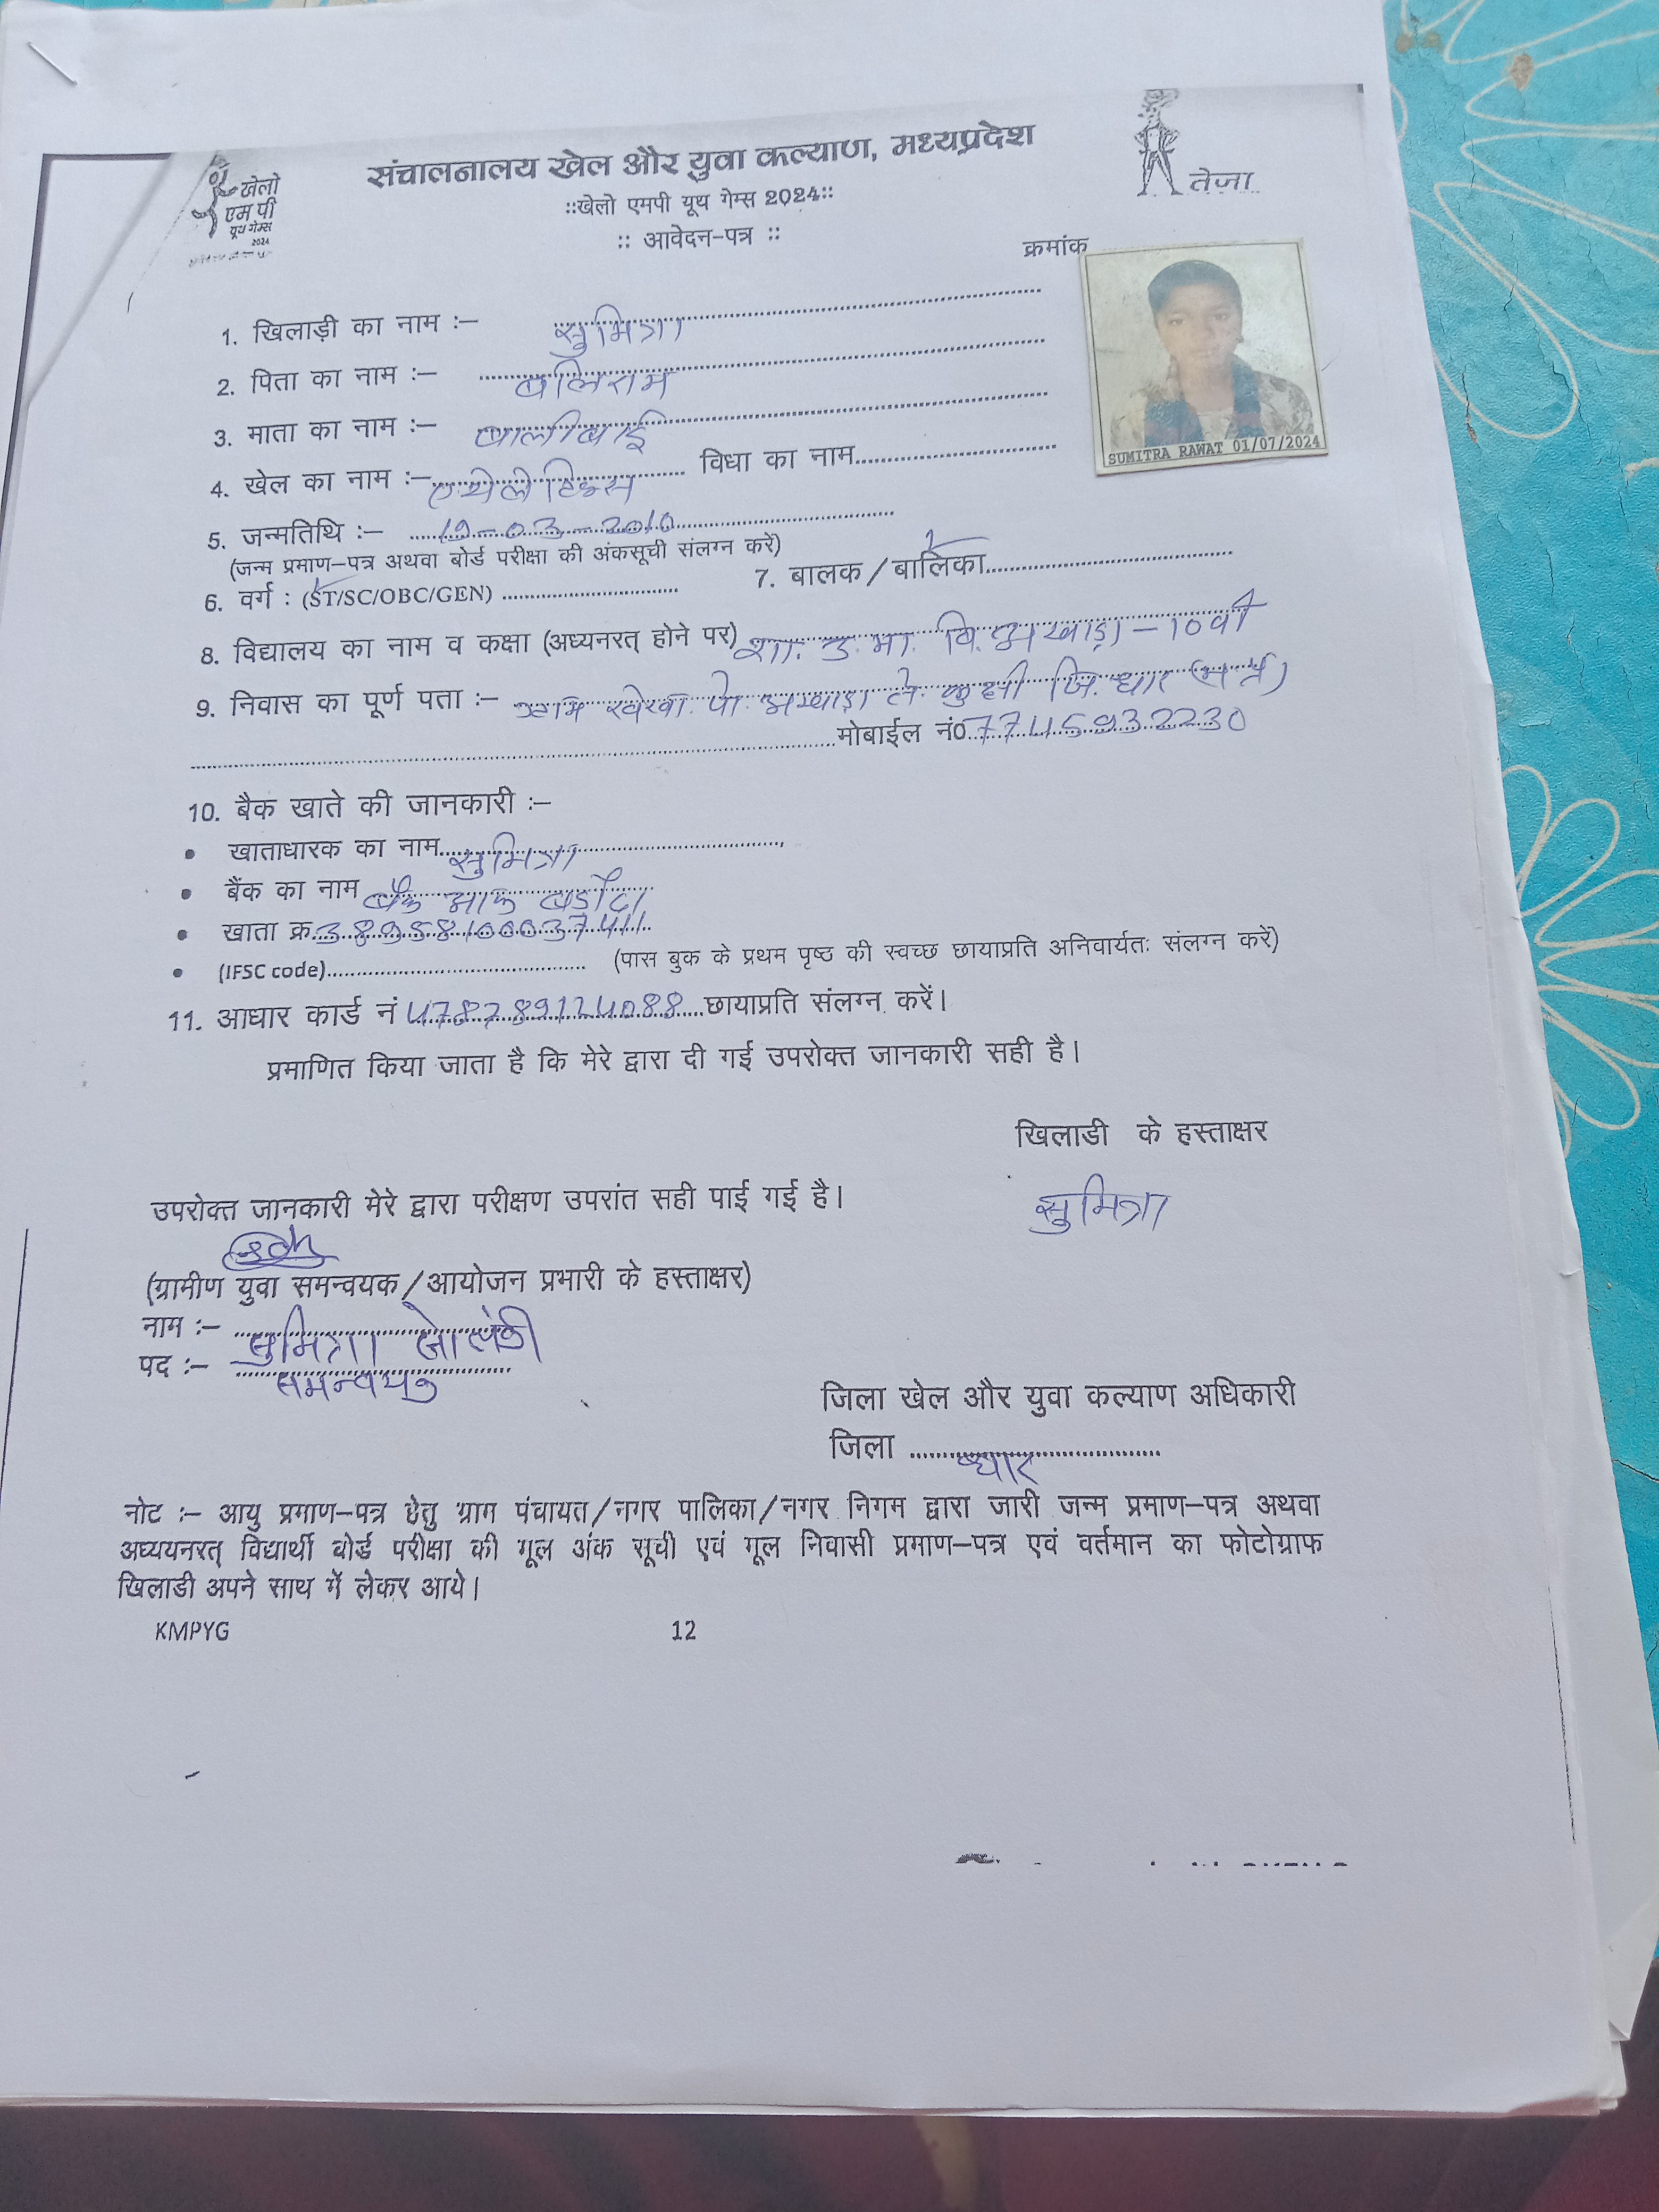 खेलो
एम पी
यूथ गेम्स
2024
संचालनालय खेल और युवा कल्याण, मध्यप्रदेश
::खेलो एमपी यूथ गेम्स 2024::
:: आवेदन-पत्र ::
तेजा
क्रमांक
SUMITRA RAWAT 01/07/2024
1. खिलाड़ी का नाम :– सुमित्रा
2. पिता का नाम :– बलिराम
3. माता का नाम :– बालीबाई
4. खेल का नाम :– एथेलेटिक्स विधा का नाम
5. जन्मतिथि :– 19-03-2010
(जन्म प्रमाण–पत्र अथवा बोर्ड परीक्षा की अंकसूची संलग्न करें)
6. वर्ग : (ST/SC/OBC/GEN) 7. बालक/बालिका
8. विद्यालय का नाम व कक्षा (अध्यनरत् होने पर) शा. उ. मा. वि. अखाड़ा – 10 वी
9. निवास का पूर्ण पता :– ग्राम पो. अखाड़ा ते. कुक्षी जि. धार (म.प्र)
मोबाईल नं0 7745932230
10. बैक खाते की जानकारी :–
• खाताधारक का नाम सुमित्रा
• बैंक का नाम बैंक आफ बड़ौदा
• खाता क्र. 38958100037411
• (IFSC code) (पास बुक के प्रथम पृष्ठ की स्वच्छ छायाप्रति अनिवार्यतः संलग्न करें)
11. आधार कार्ड नं 478789124088 छायाप्रति संलग्न करें।
प्रमाणित किया जाता है कि मेरे द्वारा दी गई उपरोक्त जानकारी सही है।
खिलाडी के हस्ताक्षर
सुमित्रा
उपरोक्त जानकारी मेरे द्वारा परीक्षण उपरांत सही पाई गई है।
(ग्रामीण युवा समन्वयक/आयोजन प्रभारी के हस्ताक्षर)
नाम :– सुमित्रा सोलंकी
पद :– समन्वयक
जिला खेल और युवा कल्याण अधिकारी
जिला धार
नोट :– आयु प्रमाण–पत्र हेतु ग्राम पंचायत/नगर पालिका/नगर निगम द्वारा जारी जन्म प्रमाण–पत्र अथवा
अध्ययनरत् विद्यार्थी बोर्ड परीक्षा की मूल अंक सूची एवं मूल निवासी प्रमाण–पत्र एवं वर्तमान का फोटोग्राफ
खिलाडी अपने साथ में लेकर आये।
KMPYG 12